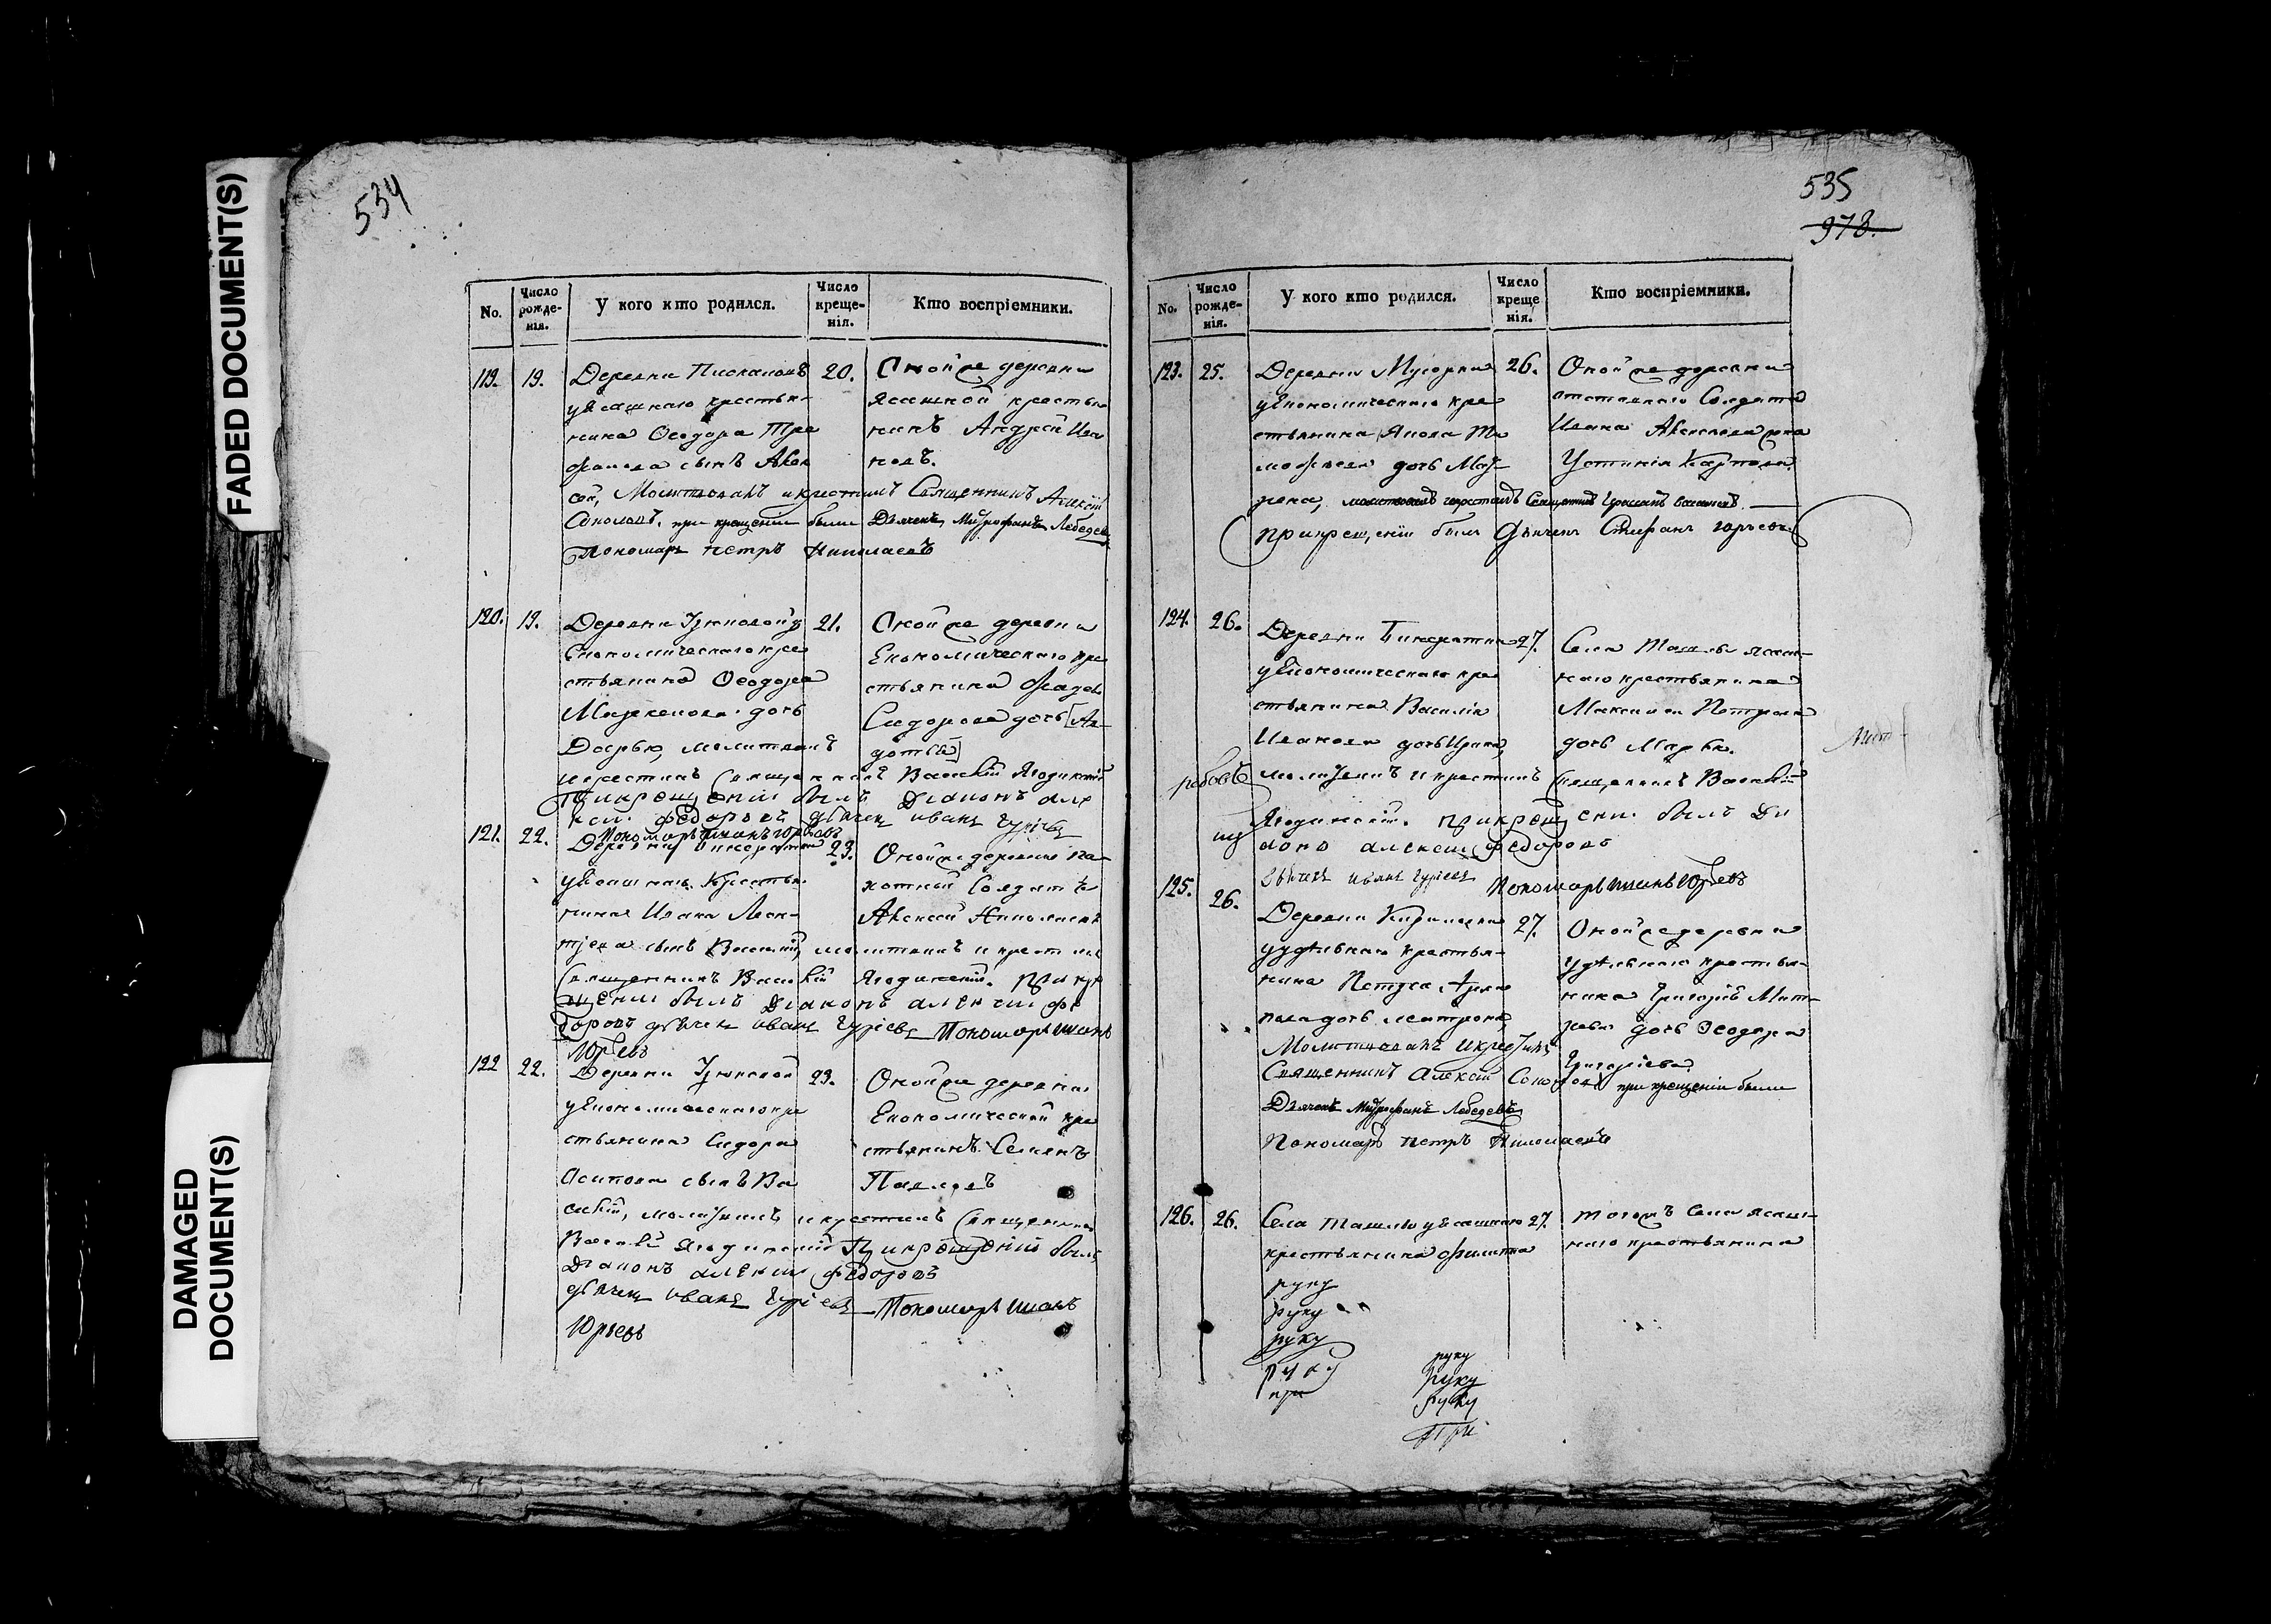 FADED DOCUMENT(S)
DAMAGED
DOCUMENT(S)
534
No.
Число рожденія.
У кого кто родился.
Число крещенія.
Кто воспріемники.
119. 19. Деревни
у Ясашнаго крестья-
нина Ѳеодора Тро
фимова сынъ Алек
сѣй, Молитвовалъ и крестилъ Священникъ Алексій
Соколовъ. при крещеніи были Дьячекъ Митрофанъ Лебедевъ
Пономарь петръ Николаевъ
20. Оной же деревни
Ясашной крестья
нинъ Андрей Ива
новъ.
120. 19. Деревни Урюповой у
Економическаго кре
стьянина Ѳеодора
дочь
Дарья, молитвовалъ
и крестилъ Священникъ Василій Ягодинскій
При крещеніи былъ Діаконъ але
ксей федоровъ дьячек иванъ Гуріевъ
Пономарь Иванъ Юрьевъ
21. Оной же деревни
Економическаго кре
стьянина Фадея
Сидорова дочь [Ав
дотья]
121. 22. Деревни
у Ясашнаго Крестья
нина Ивана Леон-
тьева сынъ Василій, молитвовалъ и крестилъ
Священникъ Василій Ягодинскій. При кре
щеніи былъ Діаконъ алексей фе
доровъ дьячек иванъ Гуріевъ Пономарь Иванъ
Юрьевъ
23. Оной же деревни па-
хотный Солдатъ
Алексей Николаевъ
122 22. Деревни Урюповой
у Економическаго кре
стьянина Сидора
Осипова сынъ Ва
силій, молитвовалъ и крестилъ Священникъ
Василій Ягодинскій При крещеніи былъ
Діаконъ алексей федоровъ
дьячек иванъ Гуріевъ Пономарь Иванъ
Юрьевъ
23. Оной же деревни
Економической кре
стьянинъ Семенъ
Павловъ
535
978.
No.
Число рожденія.
У кого кто родился.
Число креще нія.
Кто воспріемники.
123. 25. Деревни Мусорки
у Економическаго кре
стьянина Якова Ти
мофеева дочь Мат
рена, молитвовалъ и крестилъ Священникъ
При крещеніи былъ Дьячек Стефанъ юрьевъ
26. Оной же деревни
отставнаго Солдата
Ивана Алексеева жена
Устинія Карпова
124. 26. Деревни
у Економическаго кре
стьянина Василія
Иванова дочь Ирина,
молитвовалъ и крестилъ Священникъ Василій
Ягодинскій. При крещеніи былъ Ди
аконъ алексей федоровъ
дьячек иванъ Гуріевъ Пономарь Иванъ Юрьевъ
27. Села Ташлы ясаш-
наго крестьянина
Максима Петрова
дочь Марья.
125. 26. Деревни
у удѣльнаго крестья-
нина Петра
дочь Матрона,
Молитвовалъ и крестилъ
Священникъ Алексій Соколовъ при крещеніи были
Дьячекъ Митрофанъ Лебедевъ
Пономарь петръ Николаевъ
27. Оной же деревни
удѣльнаго крестья-
нина Григорія
дочь Ѳеодора
Григорьева.
126. 26. Села Ташлы у Ясашнаго
крестьянина Филиппа
27. тогожъ Села ясаш-
наго крестьянина
руку
руку
руку
руку
при
руку
руку
руку
При